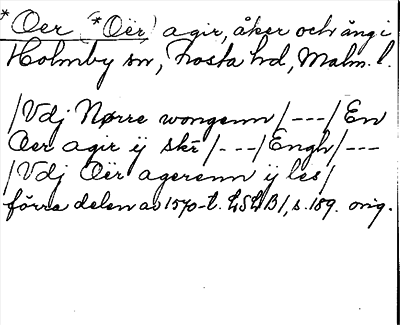 *Oer (*Oër) agir, åker och äng i
Holmby sn, Frosta hd, Malm. l.
/Vdj Nørre wongenn/---/En
Oer agir ÿ skr̄/---/Engh/---
/Vdj Oër agerenn ÿ les/
förra delen av 1570-t. LSLB1, s. 189. orig.